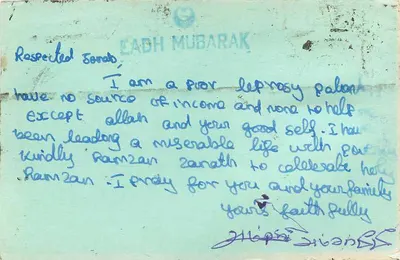 EADH MUBARAK
Respected Janab,
I am a poor leprosy patient
have no source of income and none to help
except allah and your good self. I have
been leading a miserable life with
kindly Ramzan zakath to celebrate holy
Ramzan. I pray for you and your family
yours faithfully